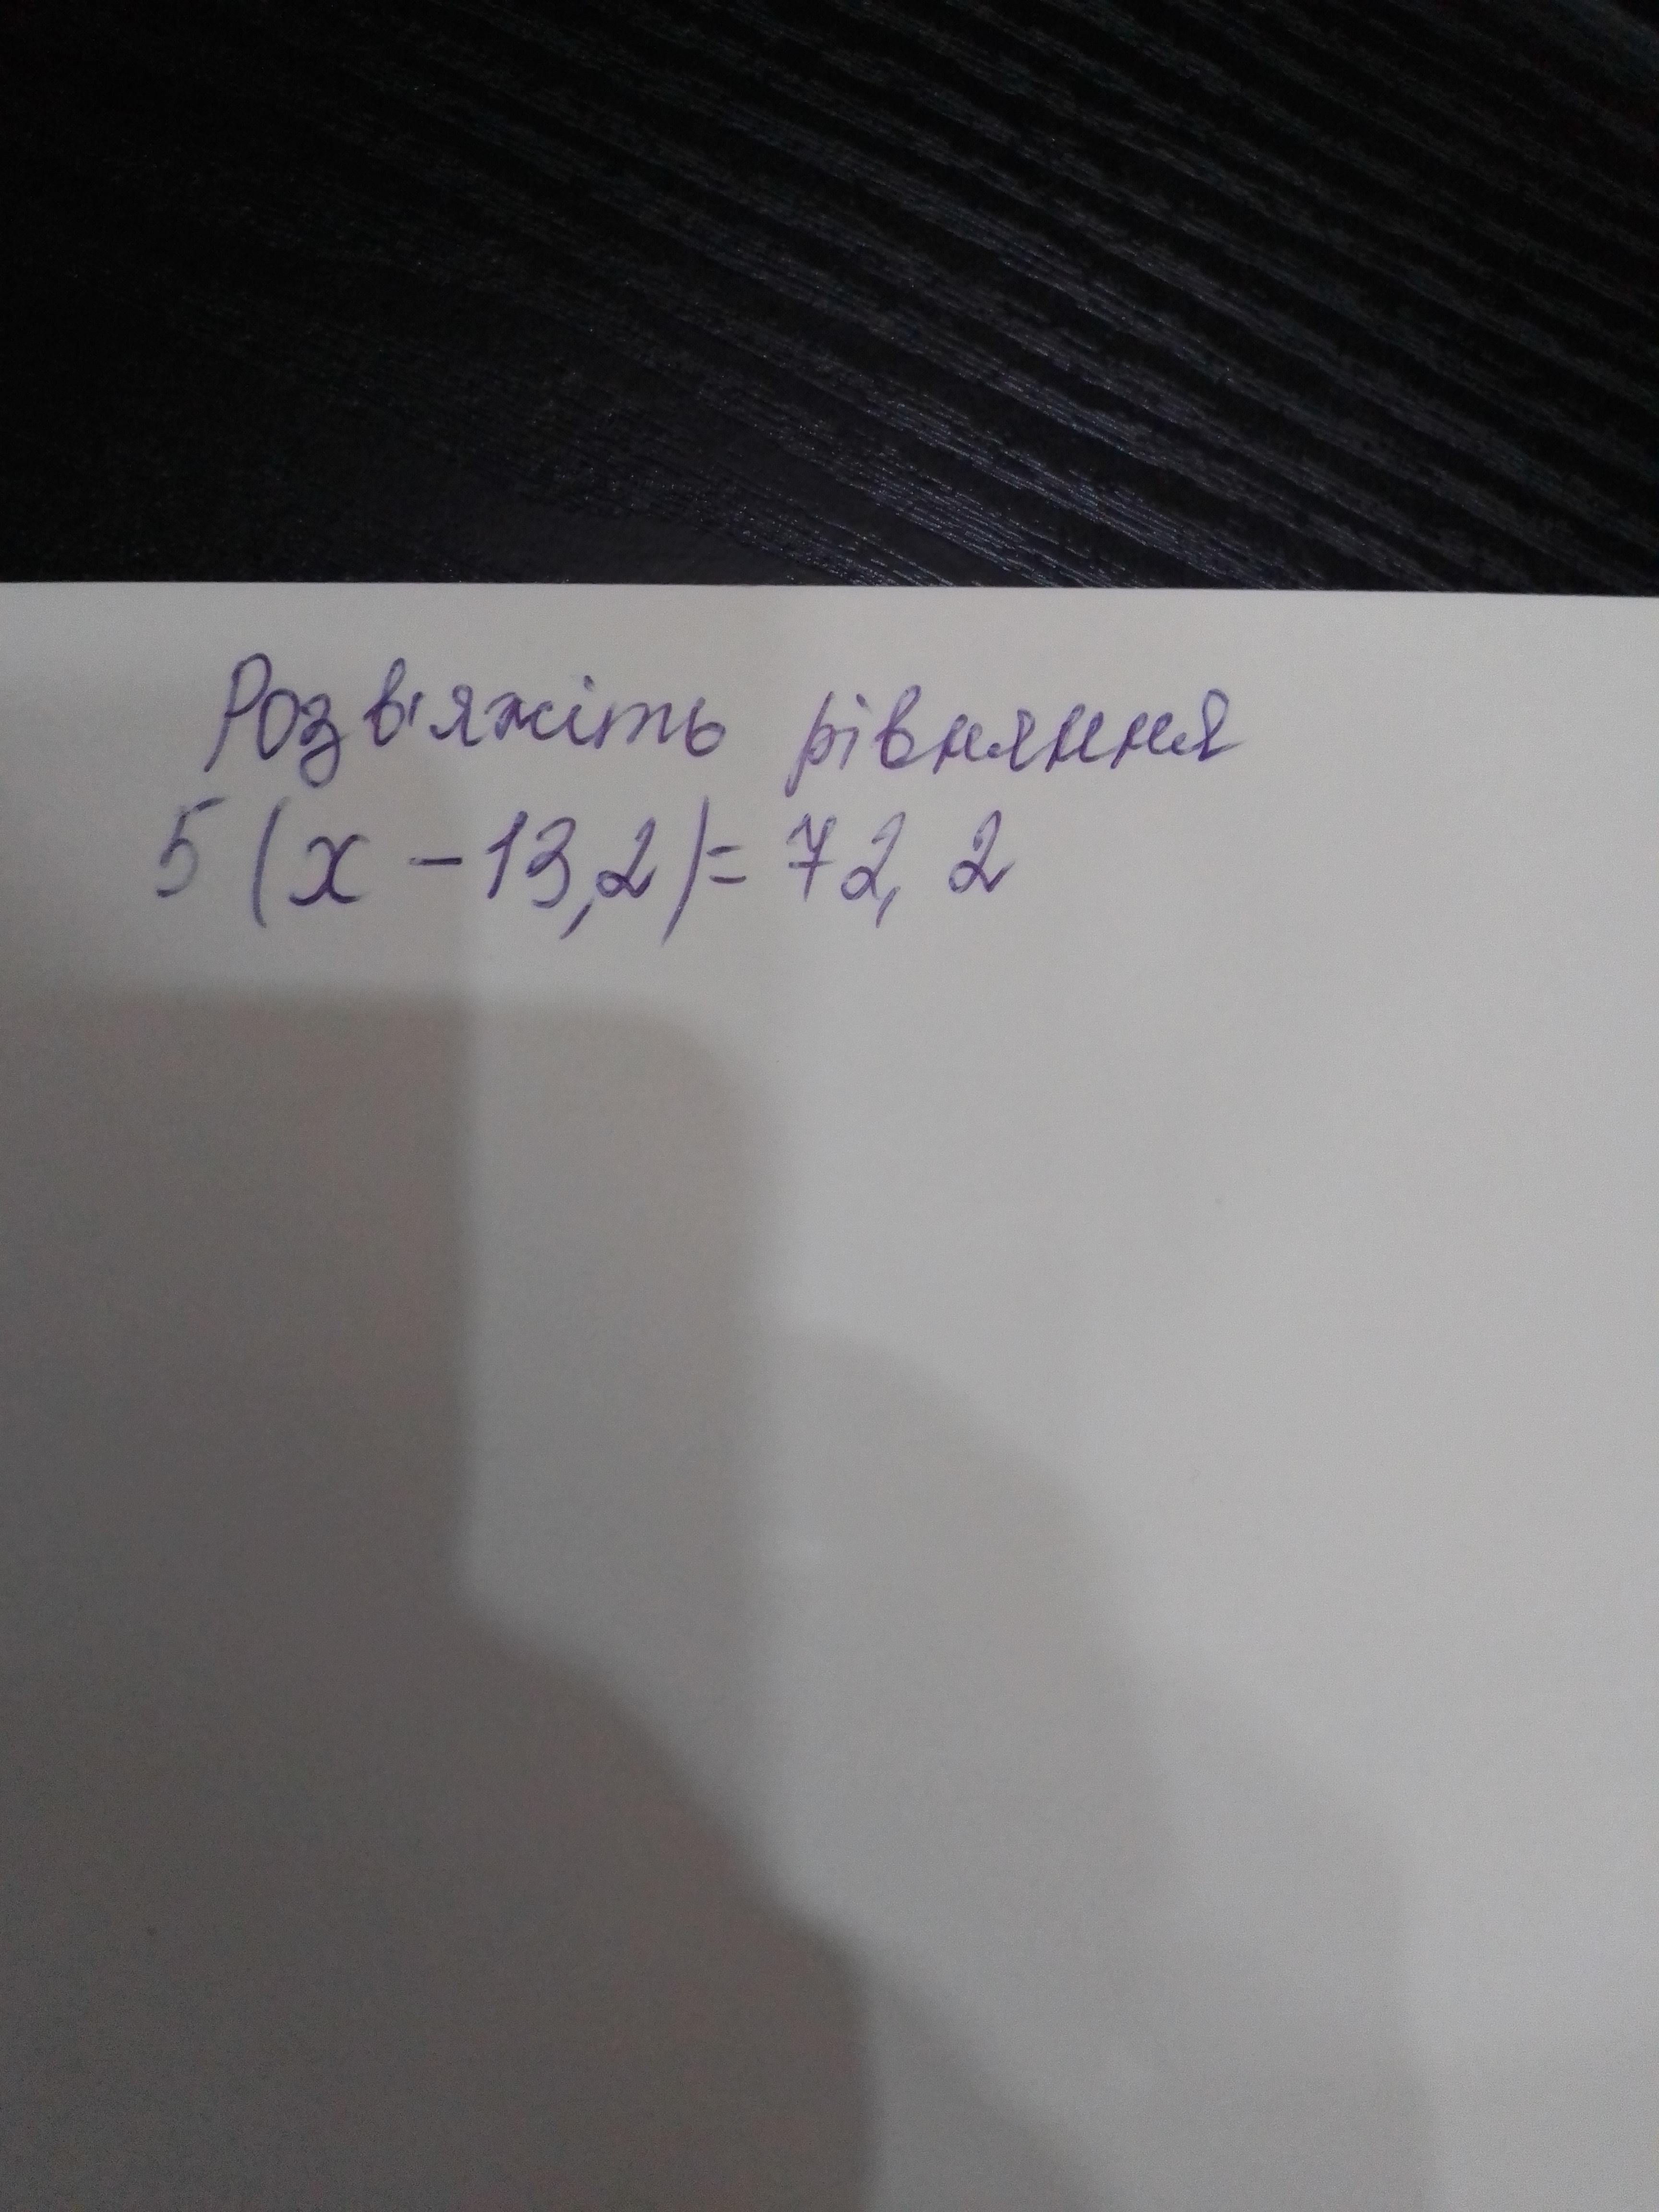 Розв'яжіть рівняння
5(x - 13,2) = 72,2